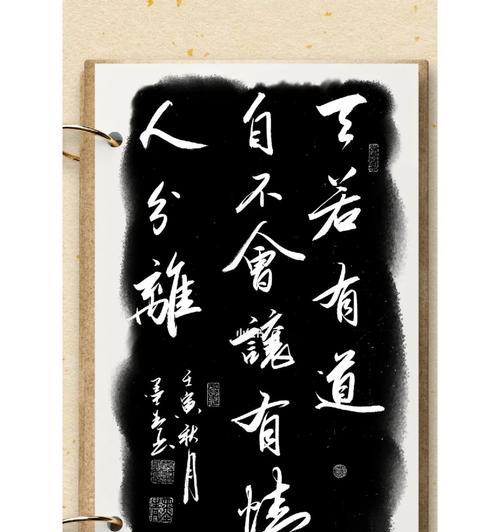 天若有道
自不會讓有情
人分離
壬寅秋月